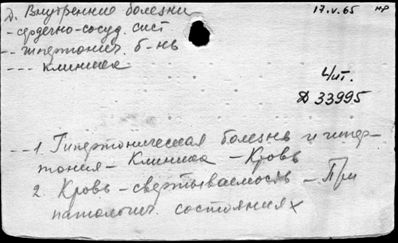 Д. Внутренние болезни 17.V.65 нр
- сердечно-сосуд. сист
-- гипертонич. б-нь
--- клиника
4/ит.
Д 33995
1 Гипертоническая болезнь и гипер-
тония - Клиника - Кровь
2. Кровь - свертываемость - При
патологич. состояниях